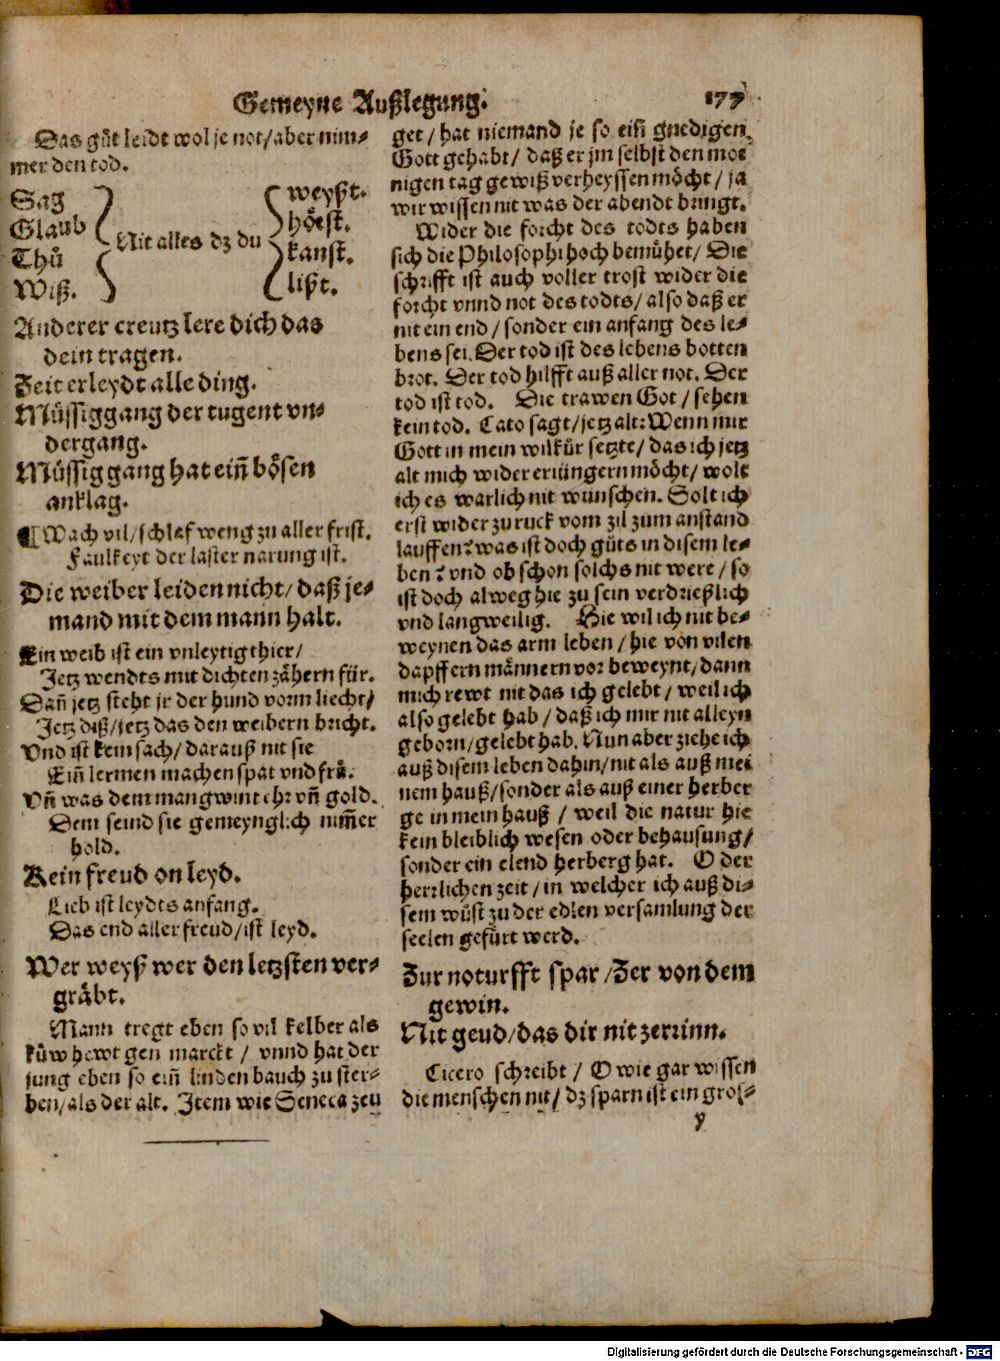 Gemeyne Außlegung. 177
Das gůt leidt wol je not/aber nim-
mer den tod.
Sag weyßt.
Glaub hörst.
Nit alles dz du
Thů kanst.
Wiß. lißt.
Anderer creutz lere dich das
dein tragen.
Zeit erleydt alle ding.
Müssiggang der tugent vn-
dergang.
Müssiggang hat eiñ bösen
anklag.
¶ Wach vil/schlaf weng zu aller frist.
Faulkeyt der laster narung ist.
Die weiber leiden nicht/daß je-
mand mit dem mann halt.
Ein weib ist ein vnleytig thier/
Jetz wendts mit dichten zähern für.
Dañ jetz steht jr der hund vorm liecht/
Jetz diß/jetz das den weibern bricht.
Vnd ist kein sach/darauß nit sie
Eiñ lermen machen spat vnd frů.
Vñ was dem man gwint ehr vñ gold.
Dem seind sie gemeynglich nim̃er
hold.
Kein freud on leyd.
Lieb ist leydts anfang.
Das end aller freud/ist leyd.
Wer weyß wer den letzsten ver-
gräbt.
Mann tregt eben so vil kelber als
küw hewt gen marckt / vnnd hat der
jung eben so eiñ linden bauch zu ster-
ben/als der alt. Item wie Seneca zeu
get/hat niemand je so eiñ gnedigen
Gott gehabt/daß er jm selbst den mor
nigen tag gewiß verheyssen möcht/ja
wir wissen nit was der abendt bringt.
Wider die forcht des todts haben
sich die Philosophi hoch bemühet/Die
schrifft ist auch voller trost wider die
forcht vnnd not des todts/also daß er
nit ein end/sonder ein anfang des le-
bens sei. Der tod ist des lebens botten
brot. Der tod hilfft auß aller not. Der
tod ist tod. Die trawen Got/sehen
kein tod. Cato sagt/jetz alt: Wenn mir
Gott in mein wilkür setzte/das ich jetz
alt mich wider eriüngern möcht/wolt
ich es warlich nit wünschen. Solt ich
erst wider zu ruck vom zil zum anstand
lauffen? was ist doch gůts in disem le-
ben? vnd ob schon solchs nit were/so
ist doch alweg hie zu sein verdrießlich
vnd langweilig. Hie wil ich nit be-
weynen das arm leben/hie von vilen
dapffern männern vor beweynt/dann
mich rewt nit das ich gelebt/weil ich
also gelebt hab/daß ich mir nit alleyn
geborn/gelebt hab. Nun aber ziehe ich
auß disem leben dahin/nit als auß mei
nem hauß/sonder als auß einer herber
ge in mein hauß / weil die natur hie
kein bleiblich wesen oder behausung/
sonder ein elend herberg hat. O der
herrlichen zeit/in welcher ich auß di-
sem wůst zu der edlen versamlung der
seelen gefürt werd.
Zur noturfft spar/Zer von dem
gewin.
Nit geud/das dir nit zerrinn.
Cicero schreibt / O wie gar wissen
die menschen nit/dz sparn ist ein gros-
y
Digitalisierung gefördert durch die Deutsche Forschungsgemeinschaft - DFG